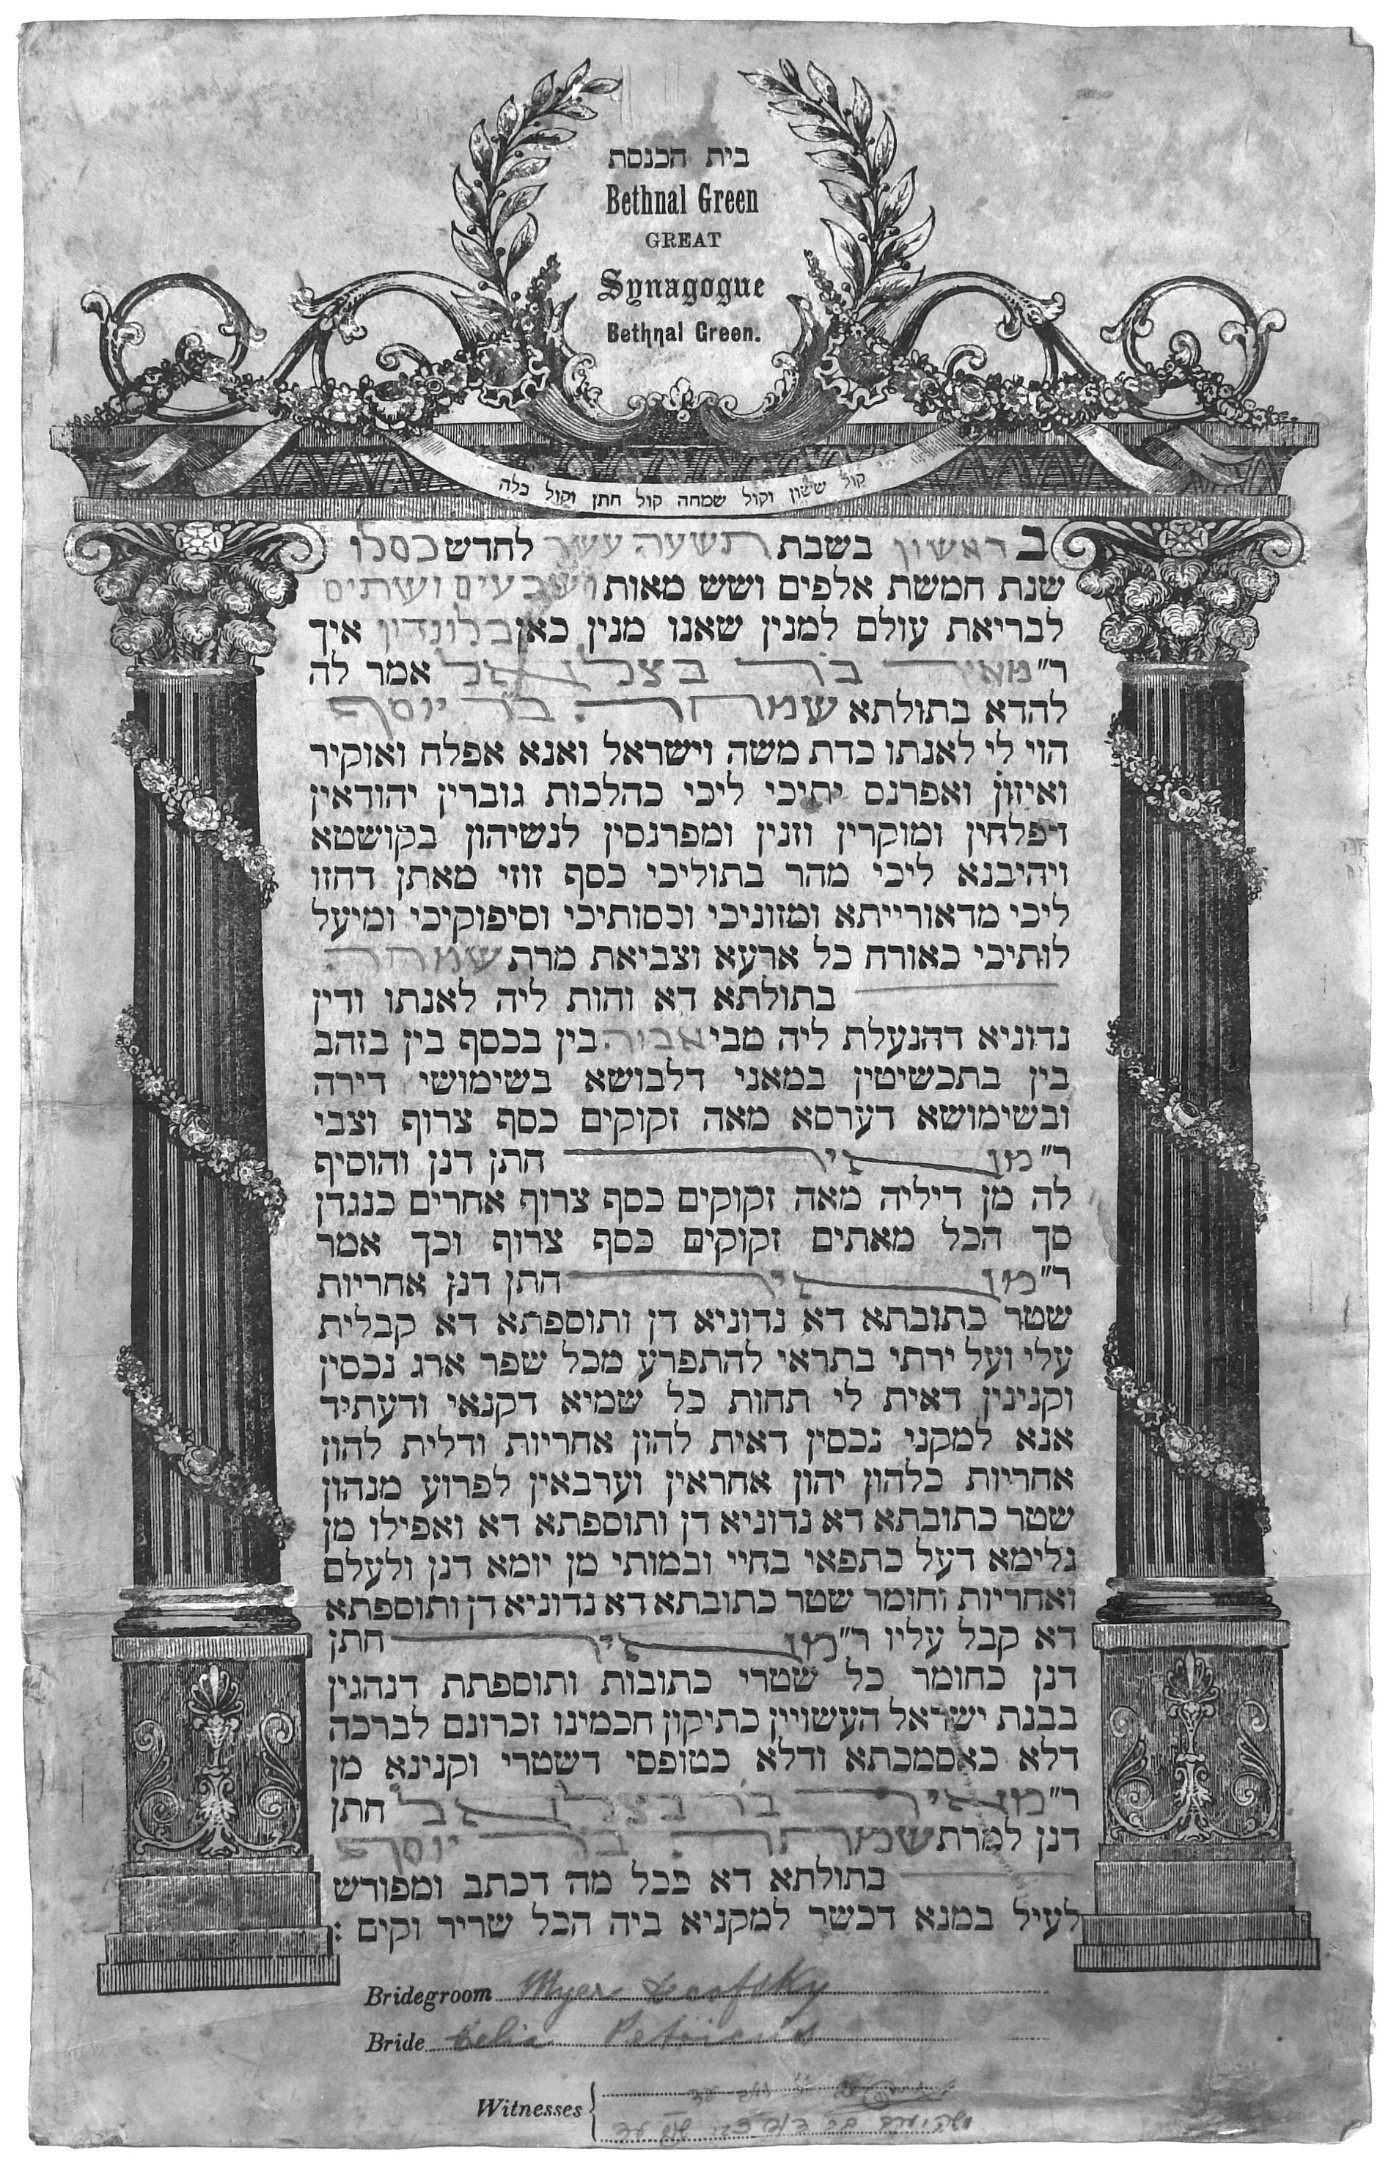 בית הכנסת
Bethnal Green
GREAT
Synagogue
Bethnal Green.
קול ששון וקול שמחה קול חתן וקול כלה
ב ראשון בשבת תשעה עשר לחדש כסלו
שנת חמשת אלפים ושש מאות ושבעים ושתים
לבריאת עולם למנין שאנו מנין כאן בלונדין איך
ר״ מאיר בר בצלאל אמר לה
להדא בתולתא שמחה בר יוסף
הוי לי לאנתו כדת משה וישראל ואנא אפלח ואוקיר
ואיזון ואפרנס יתיכי ליכי כהלכות גוברין יהודאין
דפלחין ומוקרין וזנין ומפרנסין לנשיהון בקושטא
ויהיבנא ליכי מהר בתוליכי כסף זוזי מאתן דחזו
ליכי מדאורייתא ומזוניכי וכסותיכי וסיפוקיכי ומיעל
לותיכי כאורח כל ארעא וצביאת מרת שמחה
בתולתא דא והות ליה לאנתו ודין
נדוניא דהנעלת ליה מבי אבוה בין בכסף בין בזהב
בין בתכשיטין במאני דלבושא בשימושי דירה
ובשימושא דערסא מאה זקוקים כסף צרוף וצבי
ר״ מאיר חתן דנן והוסיף
לה מן דיליה מאה זקוקים כסף צרוף אחרים כנגדן
סך הכל מאתים זקוקים כסף צרוף וכך אמר
ר״ מאיר חתן דנן אחריות
שטר כתובתא דא נדוניא דן ותוספתא דא קבלית
עלי ועל ירתי בתראי להתפרע מכל שפר ארג נכסין
וקנינין דאית לי תחות כל שמיא דקנאי ודעתיד
אנא למקני נכסין דאית להון אחריות ודלית להון
אחריות כלהון יהון אחראין וערבאין לפרוע מנהון
שטר כתובתא דא נדוניא דן ותוספתא דא ואפילו מן
גלימא דעל כתפאי בחיי ובמותי מן יומא דנן ולעלם
ואחריות וחומר שטר כתובתא דא נדוניא דן ותוספתא
דא קבל עליו ר״ מאיר חתן
דנן כחומר כל שטרי כתובות ותוספתת דנהגין
בבנת ישראל העשויין כתיקון חכמינו זכרונם לברכה
דלא כאסמכתא ודלא כטופסי דשטרי וקנינא מן
ר״ מאיר בר בצלאל חתן
דנן למרת שמחה בר יוסף
בתולתא דא ככל מה דכתב ומפורש
לעיל במנא דכשר למקניא ביה הכל שריר וקים :
Bridegroom Myer
Bride Celia
Witnesses